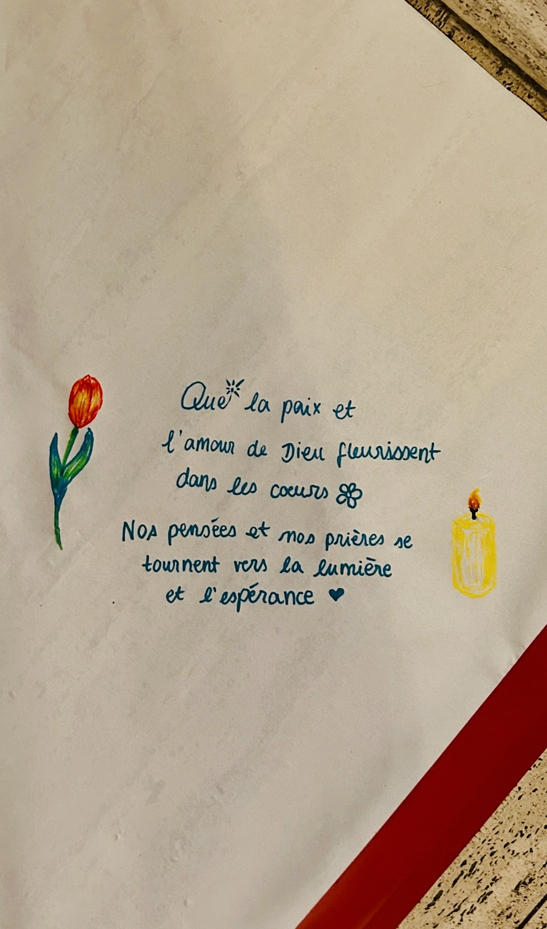 Que la paix et
l'amour de Dieu fleurissent
dans les cœurs
Nos pensées et nos prières se
tournent vers la lumière
et l'espérance